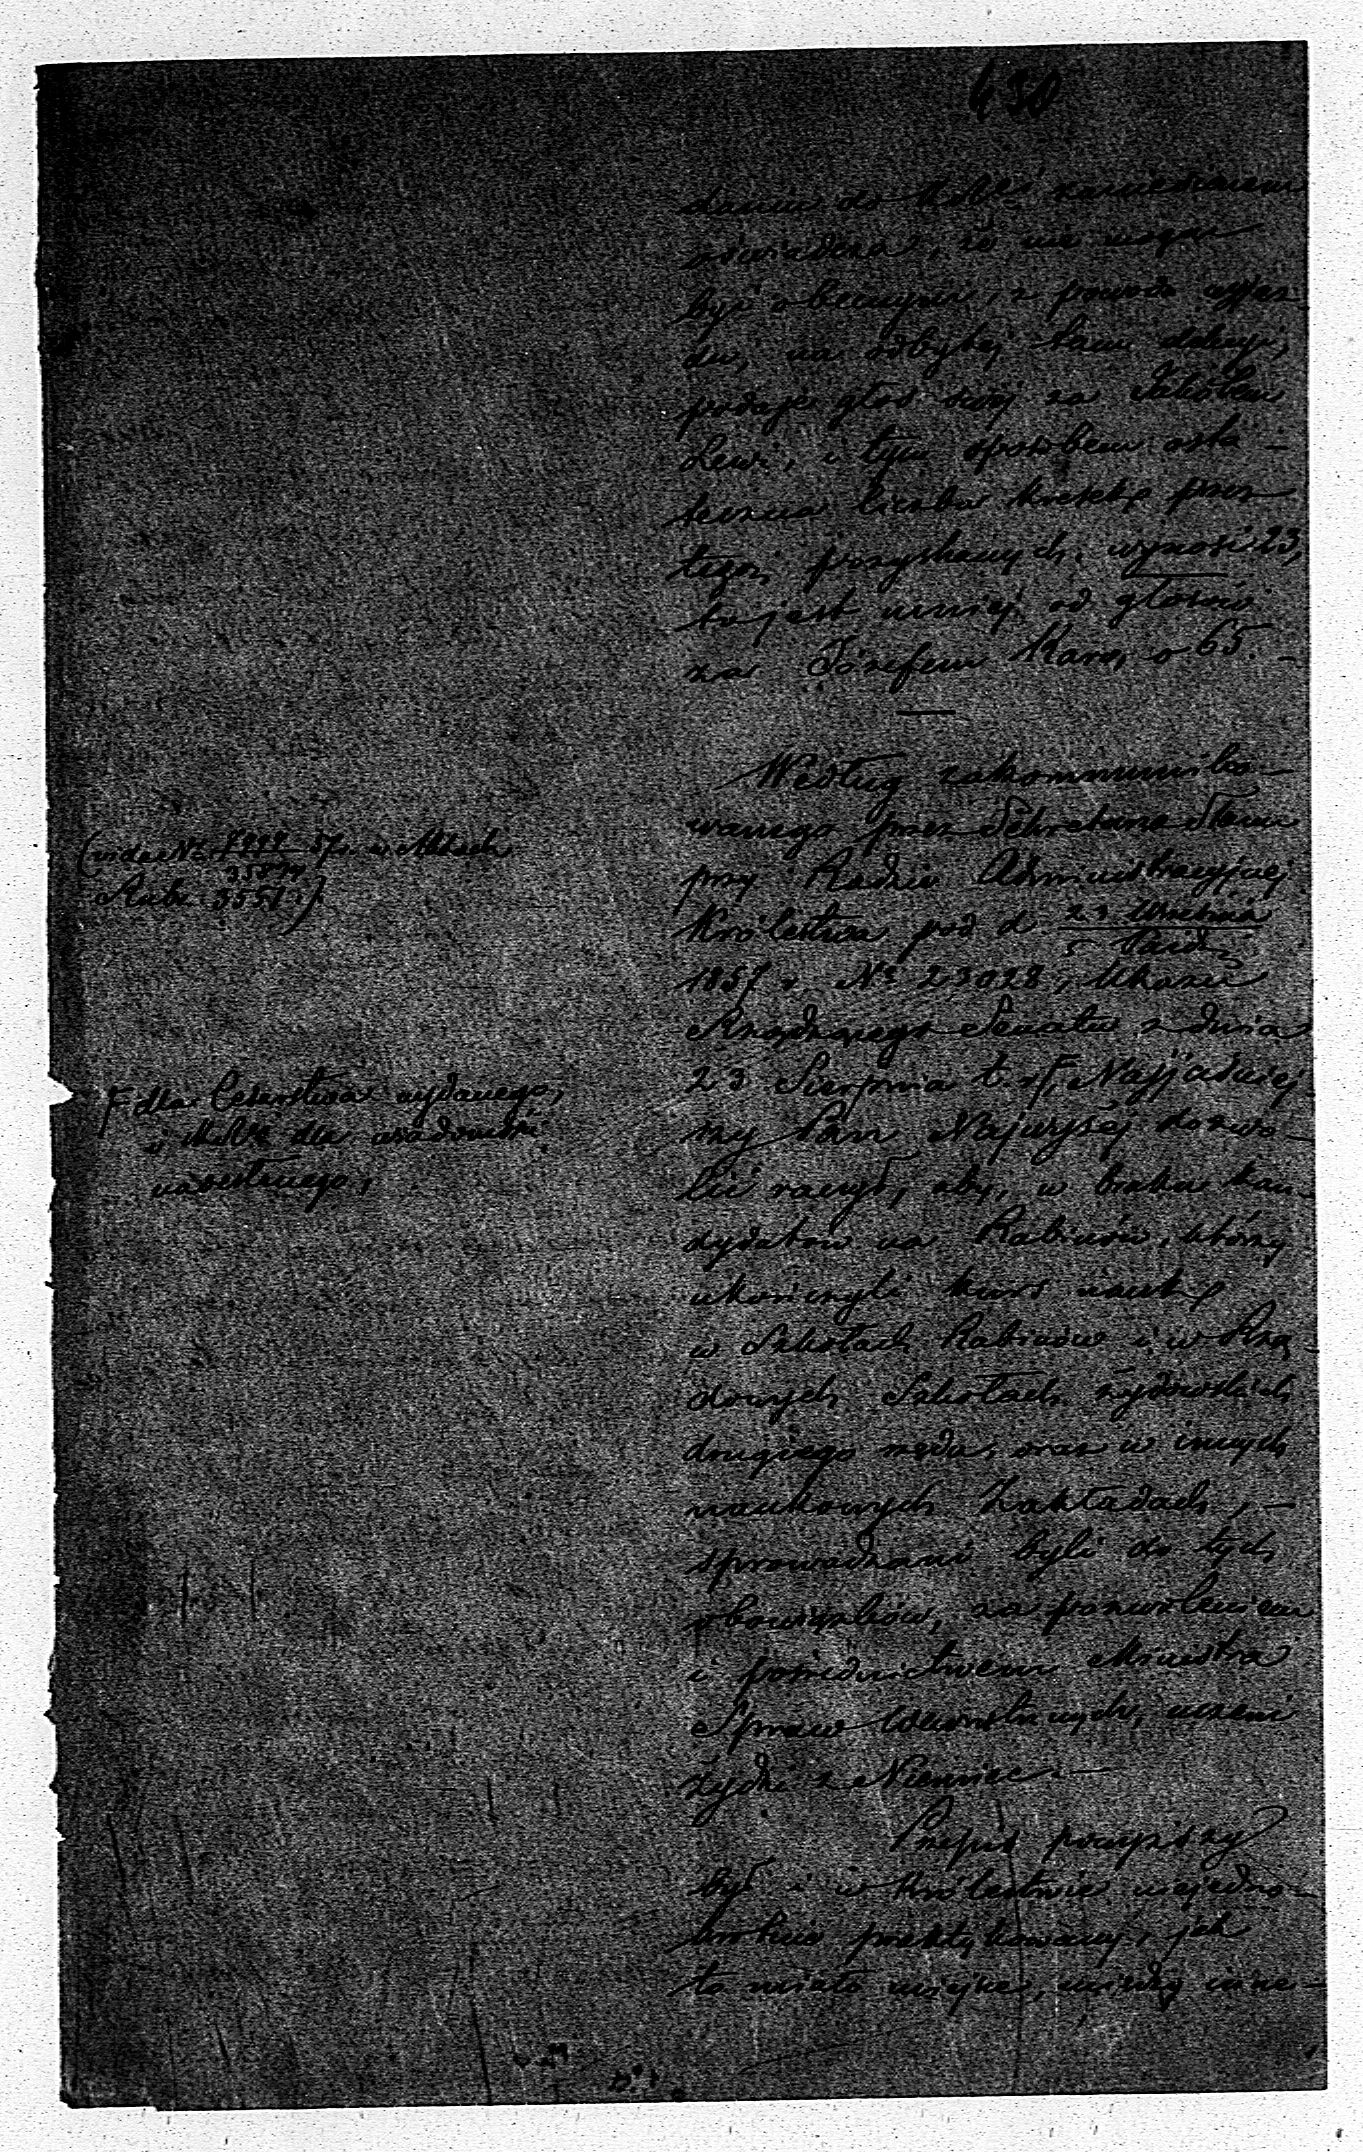 630
daniu do
oświadcza, że nie mogąc
być obecnym, z powodu wyjaz-
du, na odbytej tam
podaje głos swój za
Lewi, i tym sposobem osta-
teczna liczba kresek przez
tegoż pozyskanych, wynosi 23,
to jest mniej od głosów
za Józefem Karo, o 65. –
Według zakommuniko-
wanego przez Sekretarza Stanu
przy Radzie Administracyjnej
Królestwa pod d. 23 Września
5 Paźdz.
1857 r. № 23028, Ukazu
Rządzącego Senatu z dnia
23 Sierpnia t. r. Najjaśniej-
szy Pan Najwyżej dozwo-
lić raczył, aby, w braku kan-
dydatów na Rabinów, którzy
ukończyli kurs nauk
w Szkołach Rabinów i w Rzą-
dowych Szkołach żydowskich
drugiego rzędu, oraz w innych
naukowych Zakładach, –
sprowadzani byli do tych
obowiązków, za pozwoleniem
i pośrednictwem Ministra
Spraw Wewnętrznych, uczeni
żydzi z Niemiec. –
Przepis powyższy
był i w Królestwie niejedno-
krotnie praktykowany, jak
to miało miejsce, między inne-
(vide № 57 r. w Aktach
Rab. 5551.)
dla Cesarstwa wydanego,
i dla wiadomości
nadesłanego,